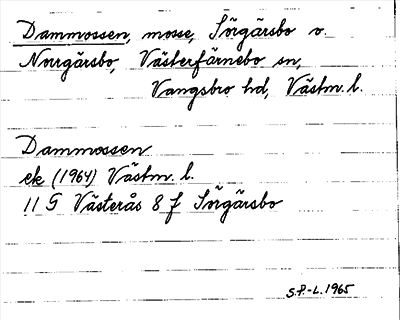 Dammossen, mosse, Sörgärsbo o.
Norrgärsbo, Västerfärnebo sn,
Vangsbro hd, Västm. l.
Dammossen
ek (1964) Västm. l.
11 G Västerås 8 f Sörgärsbo
S.P.-L. 1965